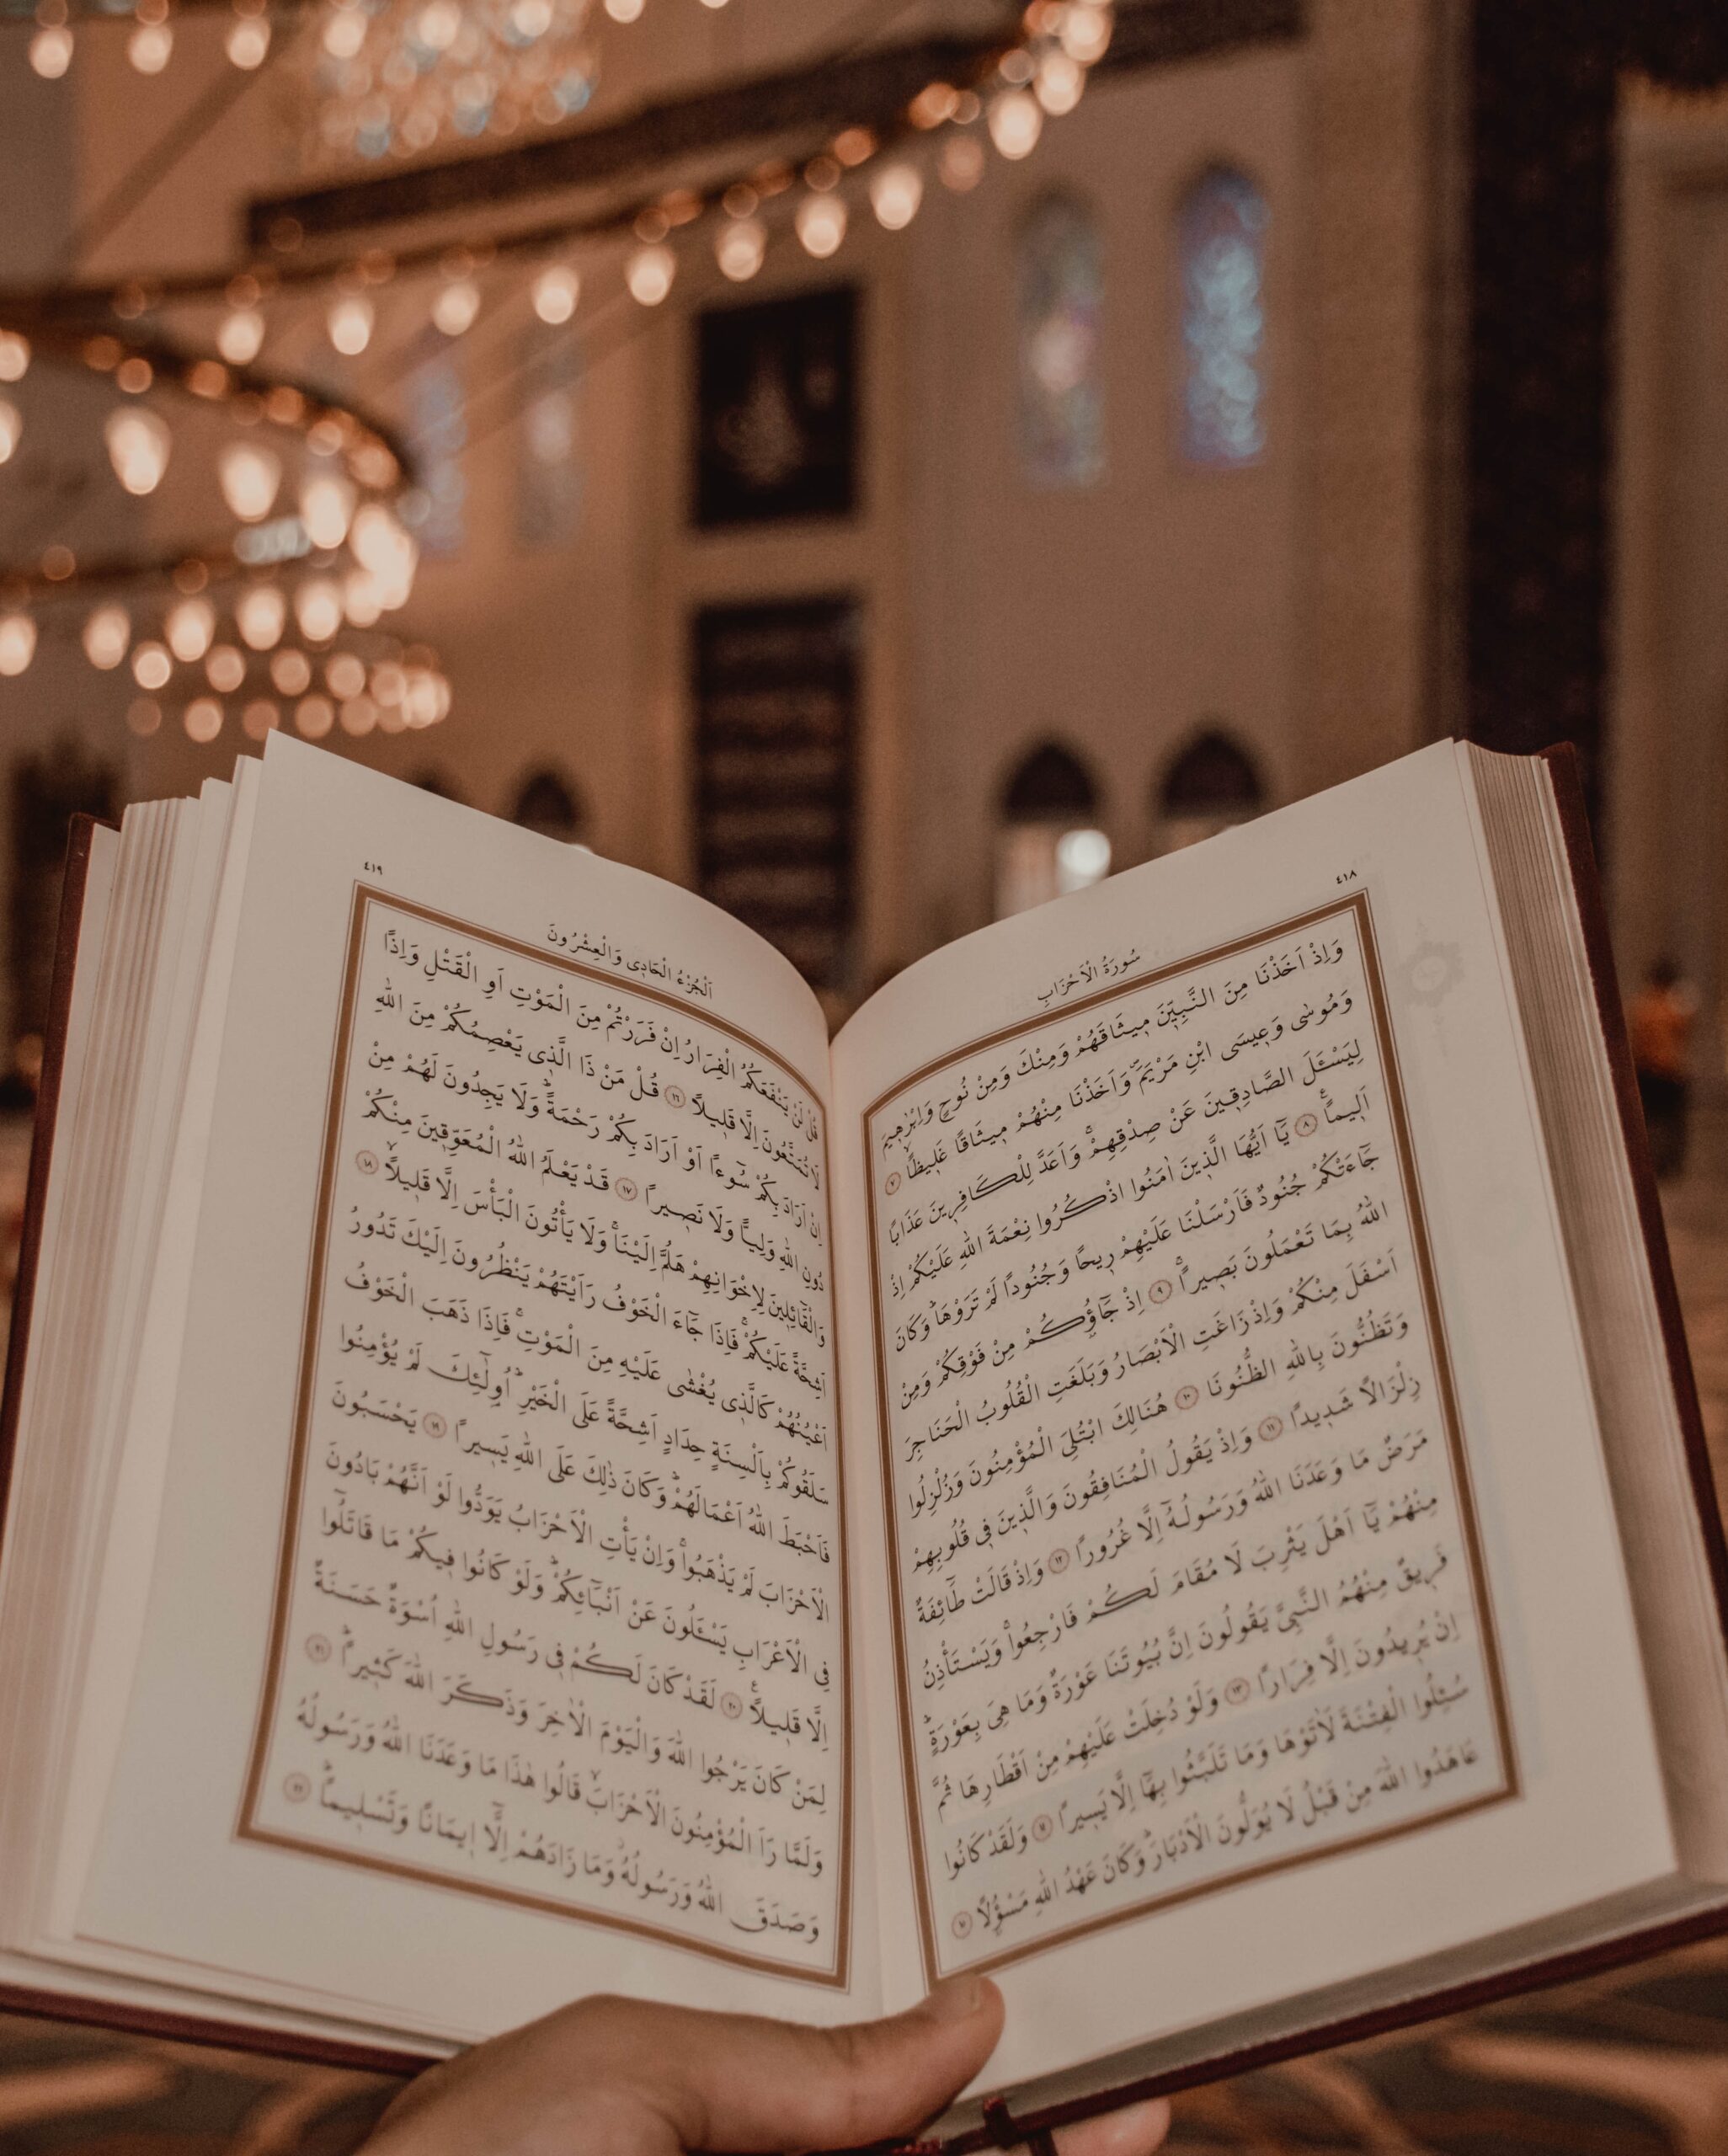 ٤١٨
سُورَةُ الْاَحْزَابِ
وَاِذْ اَخَذْنَا مِنَ النَّبِيّٖنَ مٖيثَاقَهُمْ وَمِنْكَ وَمِنْ نُوحٍ وَاِبْرٰهٖيمَ
وَمُوسٰى وَعٖيسَى ابْنِ مَرْيَمَۖ وَاَخَذْنَا مِنْهُمْ مٖيثَاقًا غَلٖيظًاۙ ٧
لِيَسْـَٔلَ الصَّادِقٖينَ عَنْ صِدْقِهِمْۚ وَاَعَدَّ لِلْكَافِرٖينَ عَذَابًا
اَلٖيمًاࣖ ٨ يَٓا اَيُّهَا الَّذٖينَ اٰمَنُوا اذْكُرُوا نِعْمَةَ اللّٰهِ عَلَيْكُمْ اِذْ
جَٓاءَتْكُمْ جُنُودٌ فَاَرْسَلْنَا عَلَيْهِمْ رٖيحًا وَجُنُودًا لَمْ تَرَوْهَاؕ وَكَانَ
اللّٰهُ بِمَا تَعْمَلُونَ بَصٖيرًاۚ ٩ اِذْ جَٓاؤُ۫كُمْ مِنْ فَوْقِكُمْ وَمِنْ
اَسْفَلَ مِنْكُمْ وَاِذْ زَاغَتِ الْاَبْصَارُ وَبَلَغَتِ الْقُلُوبُ الْحَنَاجِرَ
وَتَظُنُّونَ بِاللّٰهِ الظُّنُونَا ١٠ هُنَالِكَ ابْتُلِيَ الْمُؤْمِنُونَ وَزُلْزِلُوا
زِلْزَالًا شَدٖيدًا ١١ وَاِذْ يَقُولُ الْمُنَافِقُونَ وَالَّذٖينَ فٖى قُلُوبِهِمْ
مَرَضٌ مَا وَعَدَنَا اللّٰهُ وَرَسُولُهُٓ اِلَّا غُرُورًا ١٢ وَاِذْ قَالَتْ طَٓائِفَةٌ
مِنْهُمْ يَٓا اَهْلَ يَثْرِبَ لَا مُقَامَ لَكُمْ فَارْجِعُواۚ وَيَسْتَأْذِنُ
فَرٖيقٌ مِنْهُمُ النَّبِيَّ يَقُولُونَ اِنَّ بُيُوتَنَا عَوْرَةٌ وَمَا هِيَ بِعَوْرَةٍۚ
اِنْ يُرٖيدُونَ اِلَّا فِرَارًا ١٣ وَلَوْ دُخِلَتْ عَلَيْهِمْ مِنْ اَقْطَارِهَا ثُمَّ
سُئِلُوا الْفِتْنَةَ لَاٰتَوْهَا وَمَا تَلَبَّثُوا بِهَٓا اِلَّا يَسٖيرًا ١٤ وَلَقَدْ كَانُوا
عَاهَدُوا اللّٰهَ مِنْ قَبْلُ لَا يُوَلُّونَ الْاَدْبَارَؕ وَكَانَ عَهْدُ اللّٰهِ مَسْؤُ۫لًا ١٥
٤١٩
اَلْجُزْءُ الْحَادٖى وَالْعِشْرُونَ
قُلْ لَنْ يَنْفَعَكُمُ الْفِرَارُ اِنْ فَرَرْتُمْ مِنَ الْمَوْتِ اَوِ الْقَتْلِ وَاِذًا
لَا تُمَتَّعُونَ اِلَّا قَلٖيلًا ١٦ قُلْ مَنْ ذَا الَّذٖى يَعْصِمُكُمْ مِنَ اللّٰهِ
اِنْ اَرَادَ بِكُمْ سُٓوءًا اَوْ اَرَادَ بِكُمْ رَحْمَةًؕ وَلَا يَجِدُونَ لَهُمْ مِنْ
دُونِ اللّٰهِ وَلِيًّا وَلَا نَصٖيرًا ١٧ قَدْ يَعْلَمُ اللّٰهُ الْمُعَوِّقٖينَ مِنْكُمْ
وَالْقَٓائِلٖينَ لِاِخْوَانِهِمْ هَلُمَّ اِلَيْنَاۚ وَلَا يَأْتُونَ الْبَأْسَ اِلَّا قَلٖيلًاۙ ١٨
اَشِحَّةً عَلَيْكُمْۚ فَاِذَا جَٓاءَ الْخَوْفُ رَاَيْتَهُمْ يَنْظُرُونَ اِلَيْكَ تَدُورُ
اَعْيُنُهُمْ كَالَّذٖى يُغْشٰى عَلَيْهِ مِنَ الْمَوْتِۚ فَاِذَا ذَهَبَ الْخَوْفُ
سَلَقُوكُمْ بِاَلْسِنَةٍ حِدَادٍ اَشِحَّةً عَلَى الْخَيْرِؕ اُو۬لٰٓئِكَ لَمْ يُؤْمِنُوا
فَاَحْبَطَ اللّٰهُ اَعْمَالَهُمْؕ وَكَانَ ذٰلِكَ عَلَى اللّٰهِ يَسٖيرًا ١٩ يَحْسَبُونَ
الْاَحْزَابَ لَمْ يَذْهَبُواۚ وَاِنْ يَأْتِ الْاَحْزَابُ يَوَدُّوا لَوْ اَنَّهُمْ بَادُونَ
فِى الْاَعْرَابِ يَسْـَٔلُونَ عَنْ اَنْبَٓائِكُمْؕ وَلَوْ كَانُوا فٖيكُمْ مَا قَاتَلُٓوا
اِلَّا قَلٖيلًاࣖ ٢٠ لَقَدْ كَانَ لَكُمْ فٖى رَسُولِ اللّٰهِ اُسْوَةٌ حَسَنَةٌ
لِمَنْ كَانَ يَرْجُوا اللّٰهَ وَالْيَوْمَ الْاٰخِرَ وَذَكَرَ اللّٰهَ كَثٖيرًاؕ ٢١
وَلَمَّا رَاَ الْمُؤْمِنُونَ الْاَحْزَابَۙ قَالُوا هٰذَا مَا وَعَدَنَا اللّٰهُ وَرَسُولُهُ
وَصَدَقَ اللّٰهُ وَرَسُولُهُؗ وَمَا زَادَهُمْ اِلَّٓا اٖيمَانًا وَتَسْلٖيمًاؕ ٢٢